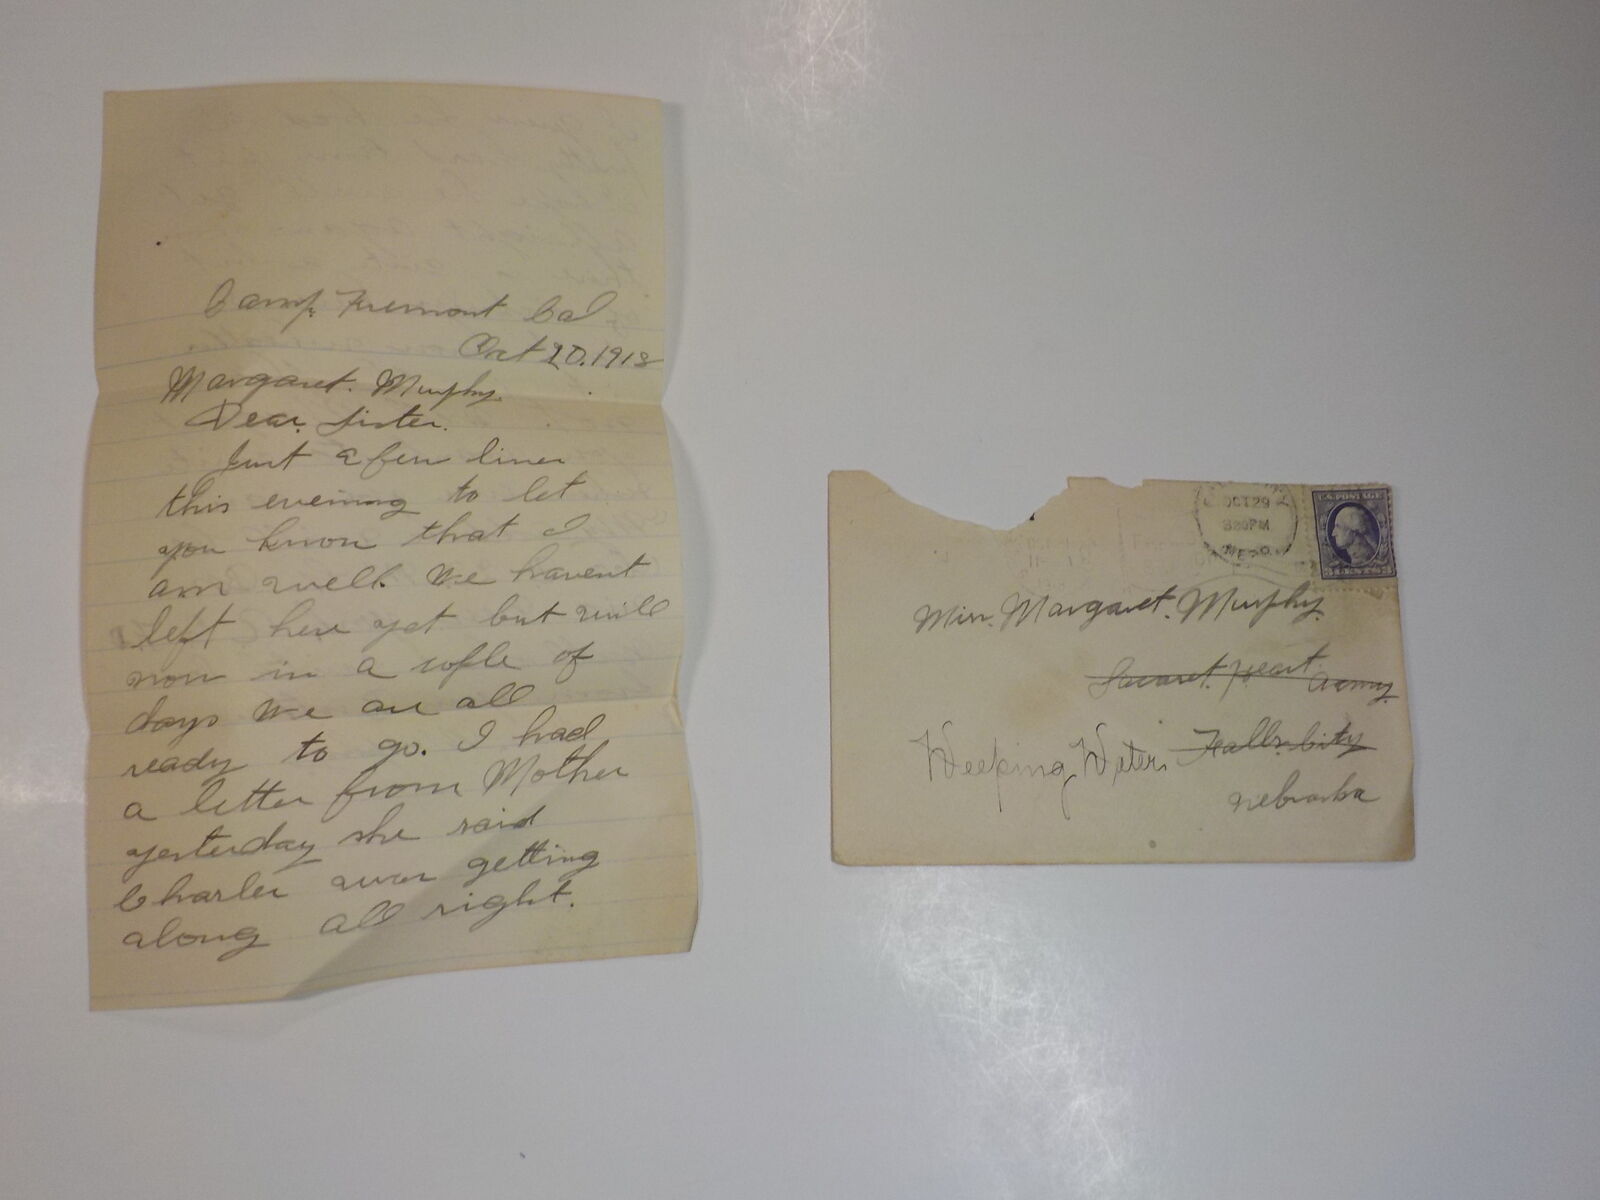 Camp. Fremont Cal
Oct 20. 1918
Margaret. Murphy.
Dear. Sister.
Just a few lines
this evening to let
you know that I
am well. We havent
left here yet but will
now in a cople of
days We are all
ready to go. I had
a letter from Mother
yesterday she said
Charles was getting
along all right.
OCT 29
3 30 PM
NEBR
U.S. POSTAGE
3 CENTS 3
Miss. Margaret. Murphy.
Sacaret. Heart.
Acmy.
Weeping Water. Falls. City
Nebraska